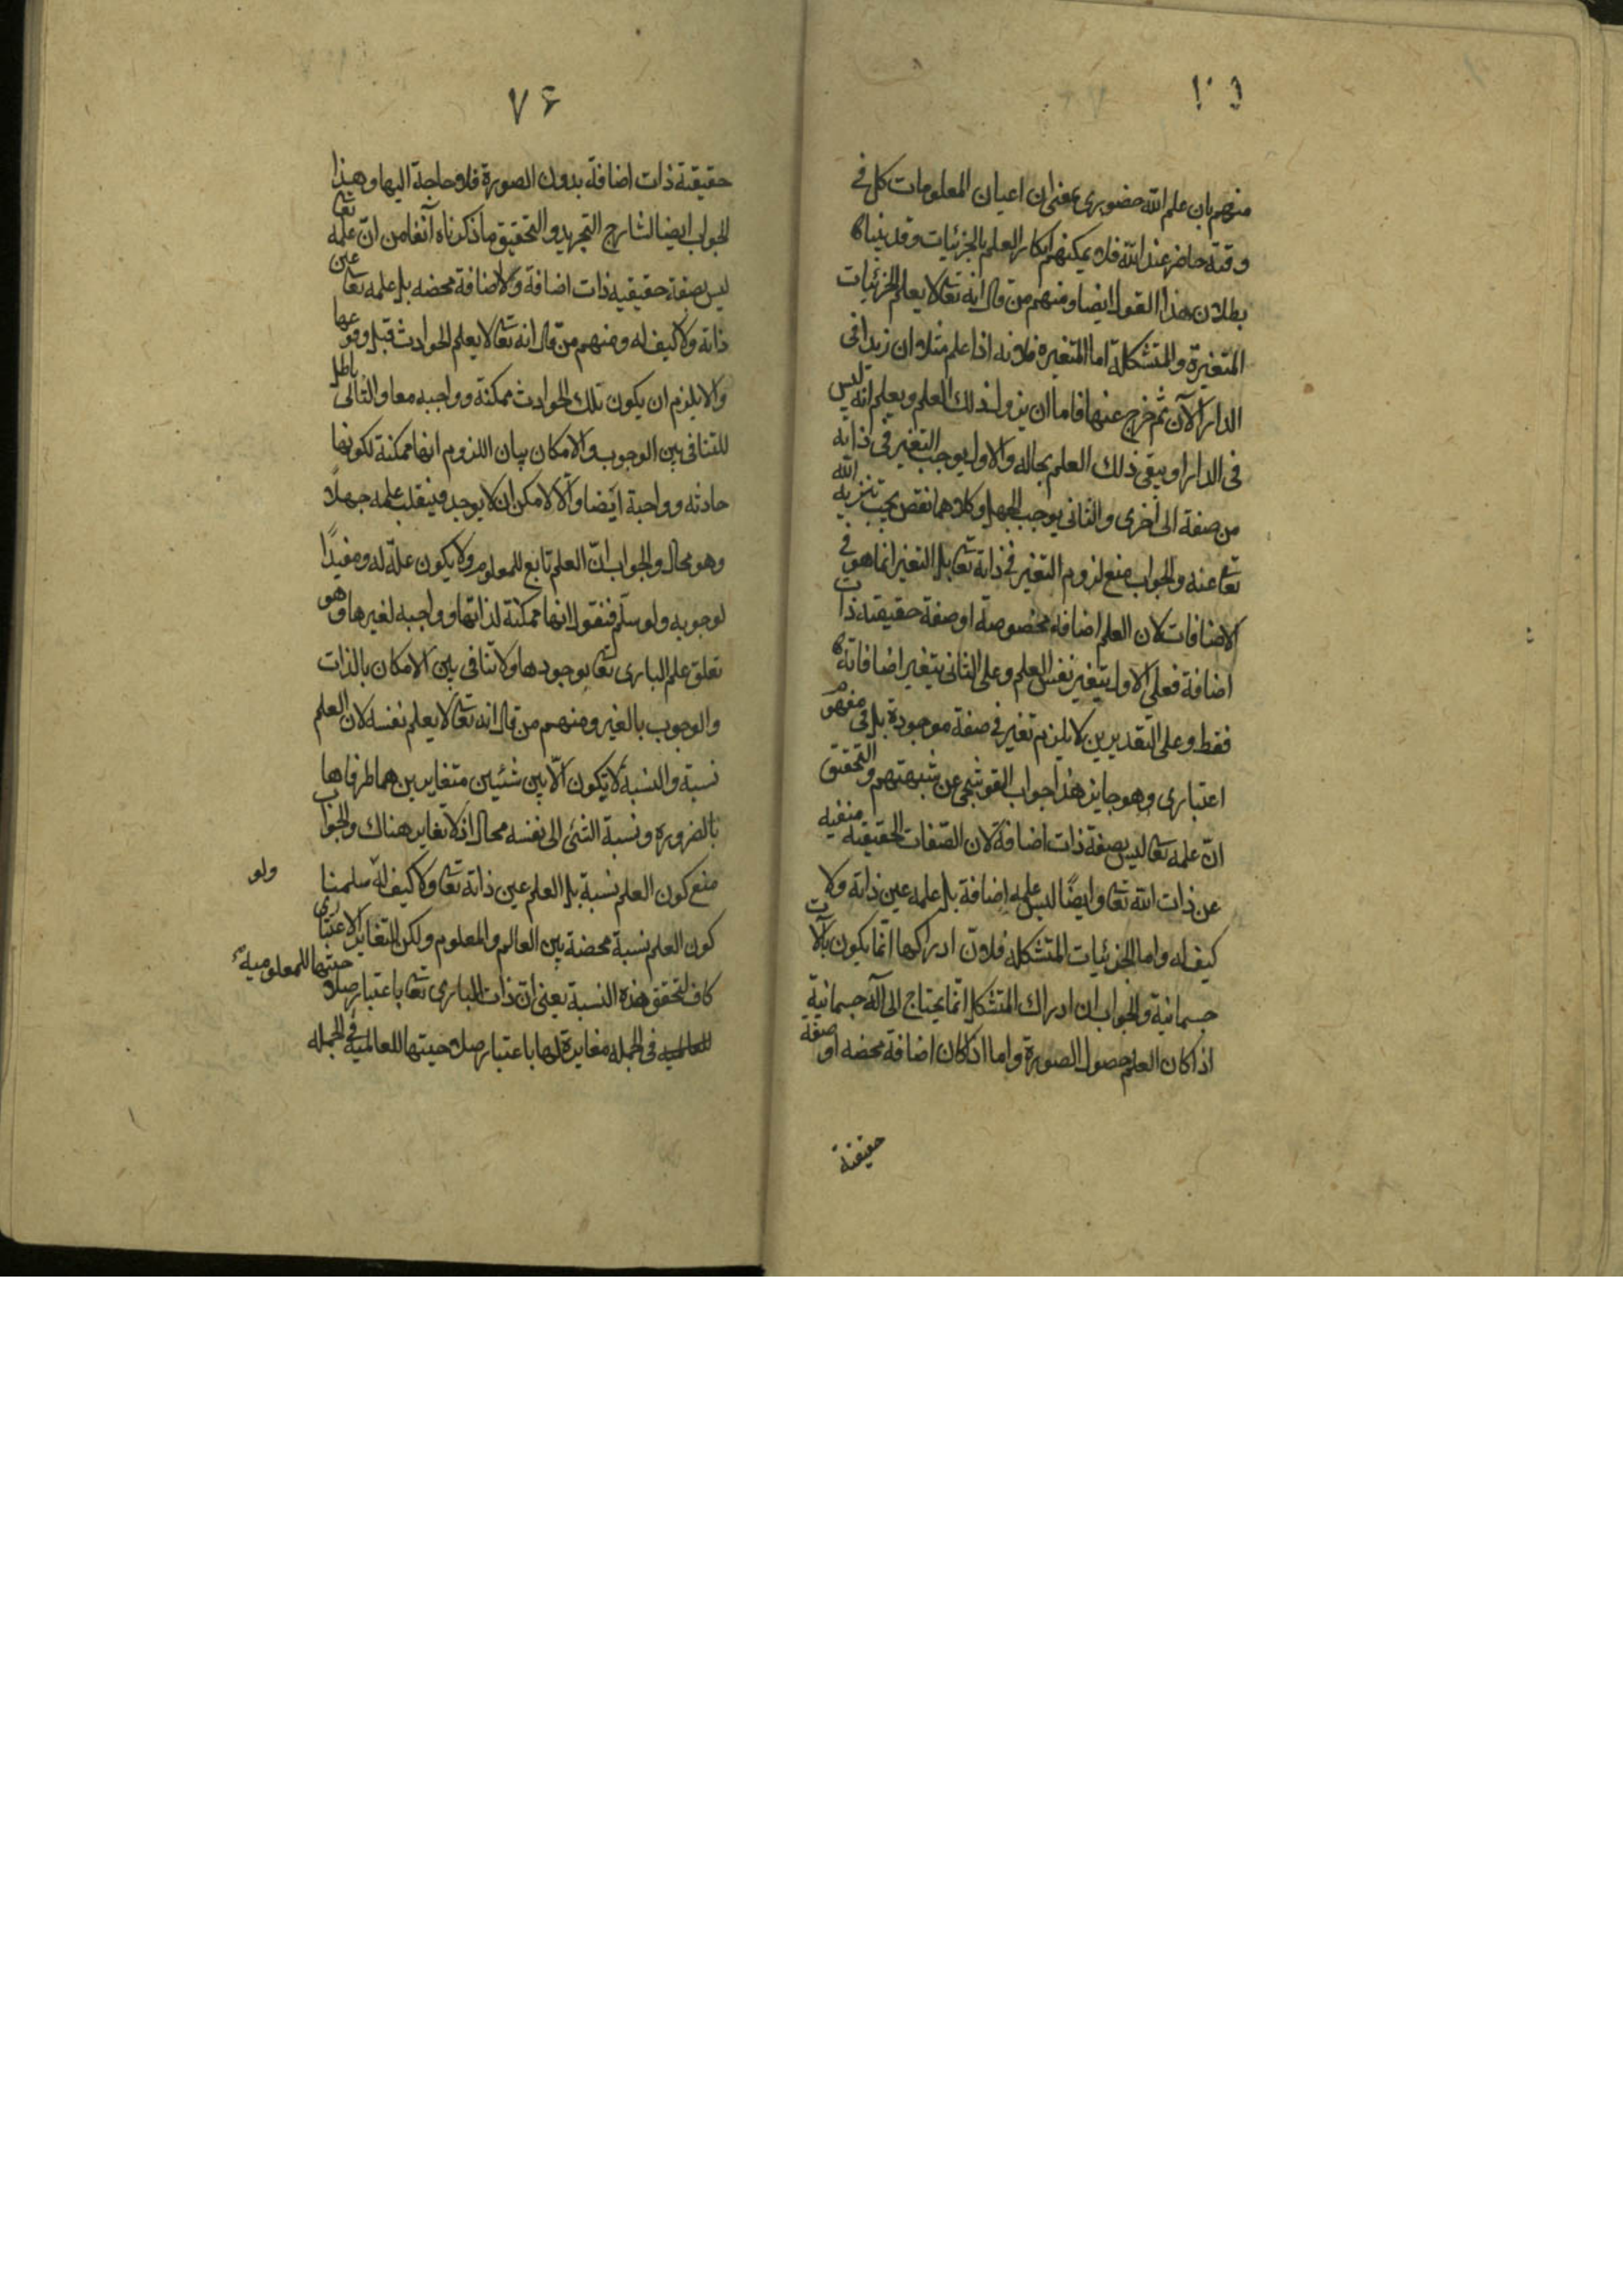 ١٠١
منهم بان علم الله حضوری بمعنی ان اعیان المعلومات کل فی
وقته حاضر عند الله فلا یمکنهم انکار العلم بالجزئیات وقد بینا
بطلان هذا القول ایضا ومنهم من قال انه تعا لا یعلم الجزئیات
المتغیرة والمتشکلة اما المتغیره فلانه اذا علم مثلا ان زیدا فی
الدار الآن ثم خرج عنها فاما ان یزول ذلک العلم ویعلم انه لیس
فی الدار او یبقی ذلک العلم بحاله والاول یوجب التغیر فی ذاته
من صفة الی اخری والثانی یوجب الجهل وکلاهما نقص یجب تنزیه الله
تعا عنه والجواب منع لزوم التغیر فی ذاته تعا بل التغیر انما هو فی
الاضافات لان العلم اضافة مخصوصة او صفة حقیقته ذات
اضافة فعلی الاول یتغیر نفس العلم وعلی الثانی یتغیر اضافاته
فقط وعلی التقدیرین لا یلزم تغیر فی صفة موجودة بل فی مفهوم
اعتباری وهو جایز هذا جواب القوشجی عن شبهتهم والتحقیق
انّ علمه تعا لیس بصفة ذات اضافة لان الصّفات الحقیقیه منفیه
عن ذات الله تعا وایضًا لیس علمه اضافة بل علمه عین ذاته ولا
کیف له واما الجزئیات المتشکله فلانّ ادراکها انّما یکون بآلات
جسمانیة والجواب ان ادراک المتشکل انّما یحتاج الی آله جسمانیة
اذا کان العلم حصول الصورة واما اذا کان اضافة محضه او صفة
حقیقتة
٧۶
حقیقتة ذات اضافة بدون الصورة فلا حاجة الیها وهذا
الجواب ایضا لشارح التجرید والتحقیق ما ذکرناه آنفا من انّ علمه تعا
لیس بصفة حقیقیه ذات اضافة ولا اضافة محضه بل علمه تعا عین
ذاته ولا کیف له ومنهم من قال انه تعا لا یعلم الحوادث قبل وقوعها
والا یلزم ان یکون تلک الحوادث ممکنة وواجبه معا والتالی باطل
للتنافی بین الوجوب والامکان بیان اللزوم انها ممکنة لکونها
حادثه وواجبة ایضا والّا لامکن ان لا یوجد فینقلب علمه جهلًا
وهو محال والجواب انّ العلم تابع للمعلوم ولا یکون علّة له ومفیدًا
لوجوبه ولو سلّم فنقول انها ممکنة لذاتها وواجبه لغیرها وهو
تعلق علم الباری تعا بوجودها ولا تنافی بین الامکان بالذات
والوجوب بالغیر ومنهم من قال انه تعا لا یعلم نفسه لان العلم
نسبة والنسبة لا تکون الّا بین شئیین متغایرین هما طرفاها
بالضرورة ونسبة الشئ الی نفسه محال اذ لا تغایر هناک والجواب
منع کون العلم نسبة بل العلم عین ذاته تعا ولا کیف له سلمنا
ولو
کون العلم نسبة محضة بین العالم والمعلوم ولکن التغایر الاعتباری
کاف لتحقق هذه النسبة یعنی انّ ذات الباری تعا باعتبار صلاحیتها للمعلومیة
للعالمیه فی الجمله مغایرة لها باعتبار صلاحیتها للعالمیة فی الجمله